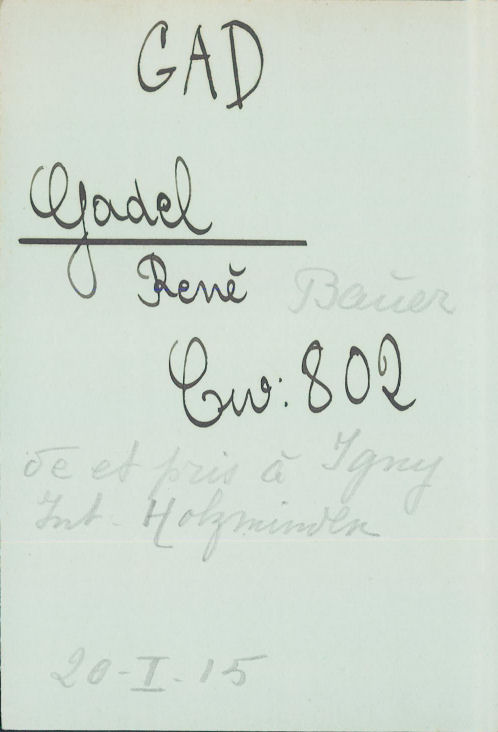 GAD
Gadel
René Bauer
Civ: 802
de et pris à Igny
Int. Holzminden
20-I-15